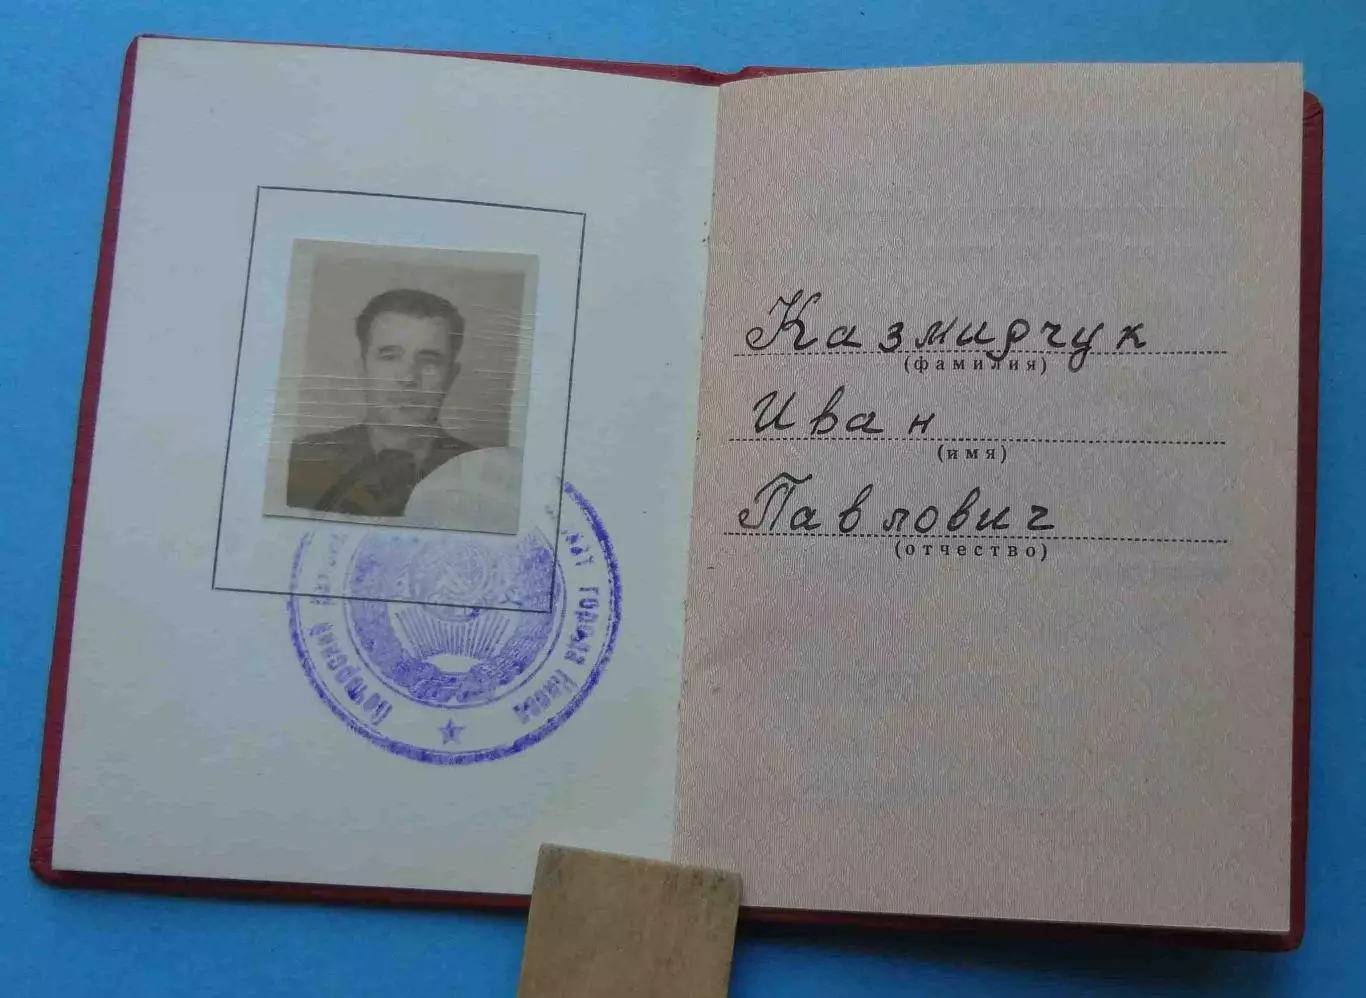 города Киева
Казмидчук
(фамилия)
Иван
(имя)
Павлович
(отчество)